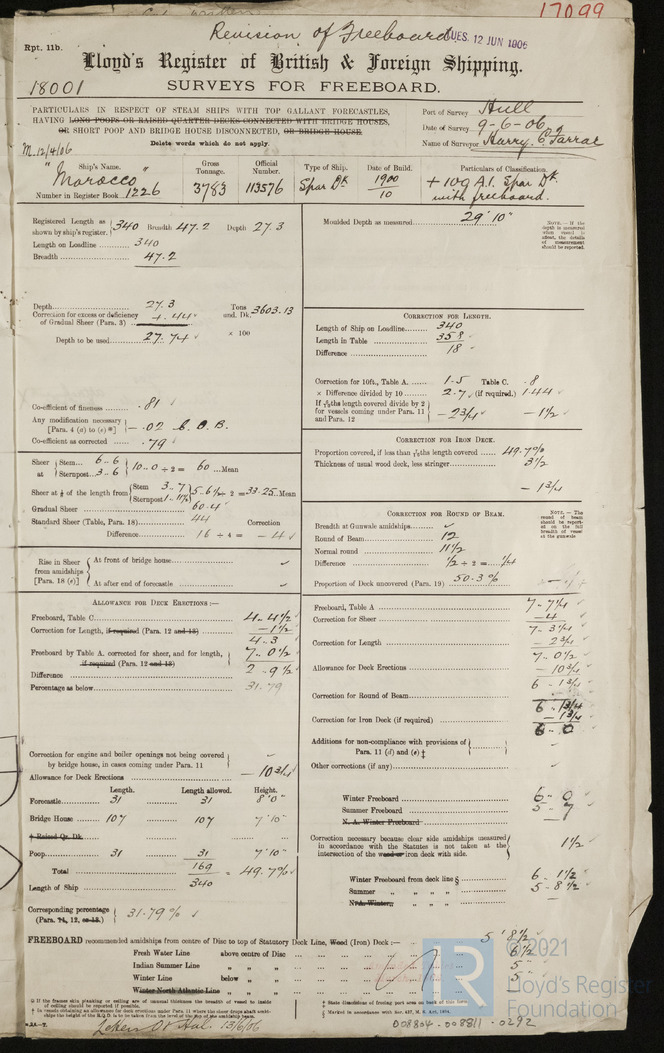 17099
Revision of Freeboard
TUES. 12 JUN 1906
Rpt. 11b.
Lloyd's Register of British & Foreign Shipping.
18001
SURVEYS FOR FREEBOARD.
PARTICULARS IN RESPECT OF STEAM SHIPS WITH TOP GALLANT FORECASTLES,
HAVING LONG POOPS OR RAISED QUARTER DECKS CONNECTED WITH BRIDGE HOUSES,
OR SHORT POOP AND BRIDGE HOUSE DISCONNECTED, OR BRIDGE HOUSE.
Delete words which do not apply.
Port of Survey Hull
Date of Survey 9-6-06
Name of Surveyor Harry C.
M. 12/4/06
Ship's Name. Gross Tonnage. Official Number. Type of Ship. Date of Build. Particulars of Classification.
"Morocco" 3783 113576 Spar Dk 1900/10 + 100 A.1. Spar Dk. with freeboard.
Number in Register Book 1226
Registered Length as shown by ship's register. 340 Breadth 47.2 Depth 27.3
Length on Loadline 340
Breadth 47.2
Moulded Depth as measured 29' 10"
NOTE.—If the depth is measured when vessel is afloat, the details of measurement should be reported.
Depth 27.3
Correction for excess or deficiency of Gradual Sheer (Para. 3) + .44
Depth to be used 27.74
Tons und. Dk. 3603.13
× 100
CORRECTION FOR LENGTH.
Length of Ship on Loadline 340
Length in Table 358
Difference 18
Co-efficient of fineness .81
Any modification necessary [Para. 4 (a) to (e)*] - .02 C. O. B.
Co-efficient as corrected .79
Correction for 10ft., Table A. 1-5 Table C. .8
× Difference divided by 10 2.7 (if required.) 1.44
If 6/10ths length covered divide by 2 for vessels coming under Para. 11 and Para. 12 - 2 3/4 - 1 1/2
CORRECTION FOR IRON DECK.
Proportion covered, if less than 7/10ths length covered 49.7%
Thickness of usual wood deck, less stringer 3 1/2
- 1 3/4
Sheer at Stem 6..6 Sternpost 3..6 10..0 ÷ 2 = 60 Mean
Sheer at 1/8 of the length from Stem 3..7 Sternpost 1..11 1/2 5..6 1/2 ÷ 2 = 33.25 Mean
Gradual Sheer 60.4
Standard Sheer (Table, Para. 18) 44 Correction
Difference 16 ÷ 4 = - 4
CORRECTION FOR ROUND OF BEAM.
Breadth at Gunwale amidships
Round of Beam 12
Normal round 11 1/2
Difference 1/2 ÷ 2 = 1/4
Proportion of Deck uncovered (Para. 19) 50.3%
NOTE.—The round of beam should be reported on the full breadth of vessel at the gunwale
Rise in Sheer from amidships [Para. 18 (e)]
At front of bridge house
At after end of forecastle
ALLOWANCE FOR DECK ERECTIONS:—
Freeboard, Table C. 4..4 1/2
Correction for Length, if required (Para. 12 and 13) - 1 1/2
4..3
Freeboard by Table A. corrected for sheer, and for length, if required (Para. 12 and 13) 7..0 1/2
Difference 2..9 1/2
Percentage as below 31.79
Freeboard, Table A 7..7 1/4
Correction for Sheer - 4
7..3 1/4
Correction for Length - 2 3/4
7..0 1/2
Allowance for Deck Erections - 10 3/4
6..1 3/4
Correction for Round of Beam
6..1 3/4
Correction for Iron Deck (if required) - 1 3/4
6..0
Additions for non-compliance with provisions of Para. 11 (d) and (e) ‡
Other corrections (if any)
Correction for engine and boiler openings not being covered by bridge house, in cases coming under Para. 11
Allowance for Deck Erections - 10 3/4
Length. Length allowed. Height.
Forecastle 31 31 8'0"
Bridge House 107 107 7'10"
† Raised Qr. Dk.
Poop 31 31 7'10"
Total 169
Length of Ship 340 = 49.7%
Corresponding percentage (Para. 11, 12, or 13.) 31.79%
Winter Freeboard 6..0
Summer Freeboard 5..7
N. A. Winter Freeboard
Correction necessary because clear side amidships measured in accordance with the Statutes is not taken at the intersection of the wood or iron deck with side. 1 1/2
Winter Freeboard from deck line § 6..1 1/2
Summer „ „ „ „ 5..8 1/2
N.A. Winter,
FREEBOARD recommended amidships from centre of Disc to top of Statutory Deck Line, Wood (Iron) Deck:— 5' 8 1/2"
Fresh Water Line above centre of Disc 6 1/2
Indian Summer Line „ „ „ 5"
Winter Line below „ „ 5"
Winter North Atlantic Line „ „ „
* If the frames skin planking or ceiling are of unusual thickness the breadth of vessel to inside of ceiling should be reported if possible.
† In vessels obtaining an allowance for deck erections under Para. 11 where the sheer drops abaft amidships the height of the R.Q.D. is to be taken from the level of the top of the amidship beam.
‡ State Conditions of freeing port area on back of this form.
§ Marked in accordance with Sec. 437, M. S. Act, 1894.
13/6/06
008804-008811-0292
© 2021
Lloyd's Register
Foundation